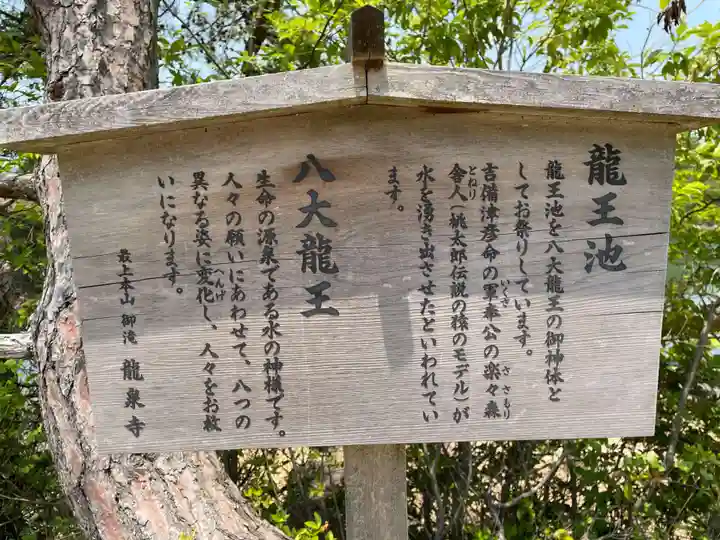 龍王池
龍王池を八大龍王の御神体と
してお祭りしています。
吉備津彦命の軍奉公の楽々森
いくさ
ささもり
舎人(桃太郎伝説の猿のモデル)が
とねり
水を湧き出させたといわれてい
ます。
八大龍王
生命の源泉である水の神様です。
人々の願いにあわせて、八つの
異なる姿に変化し、人々をお救
へんげ
いになります。
最上本山 御滝 龍泉寺